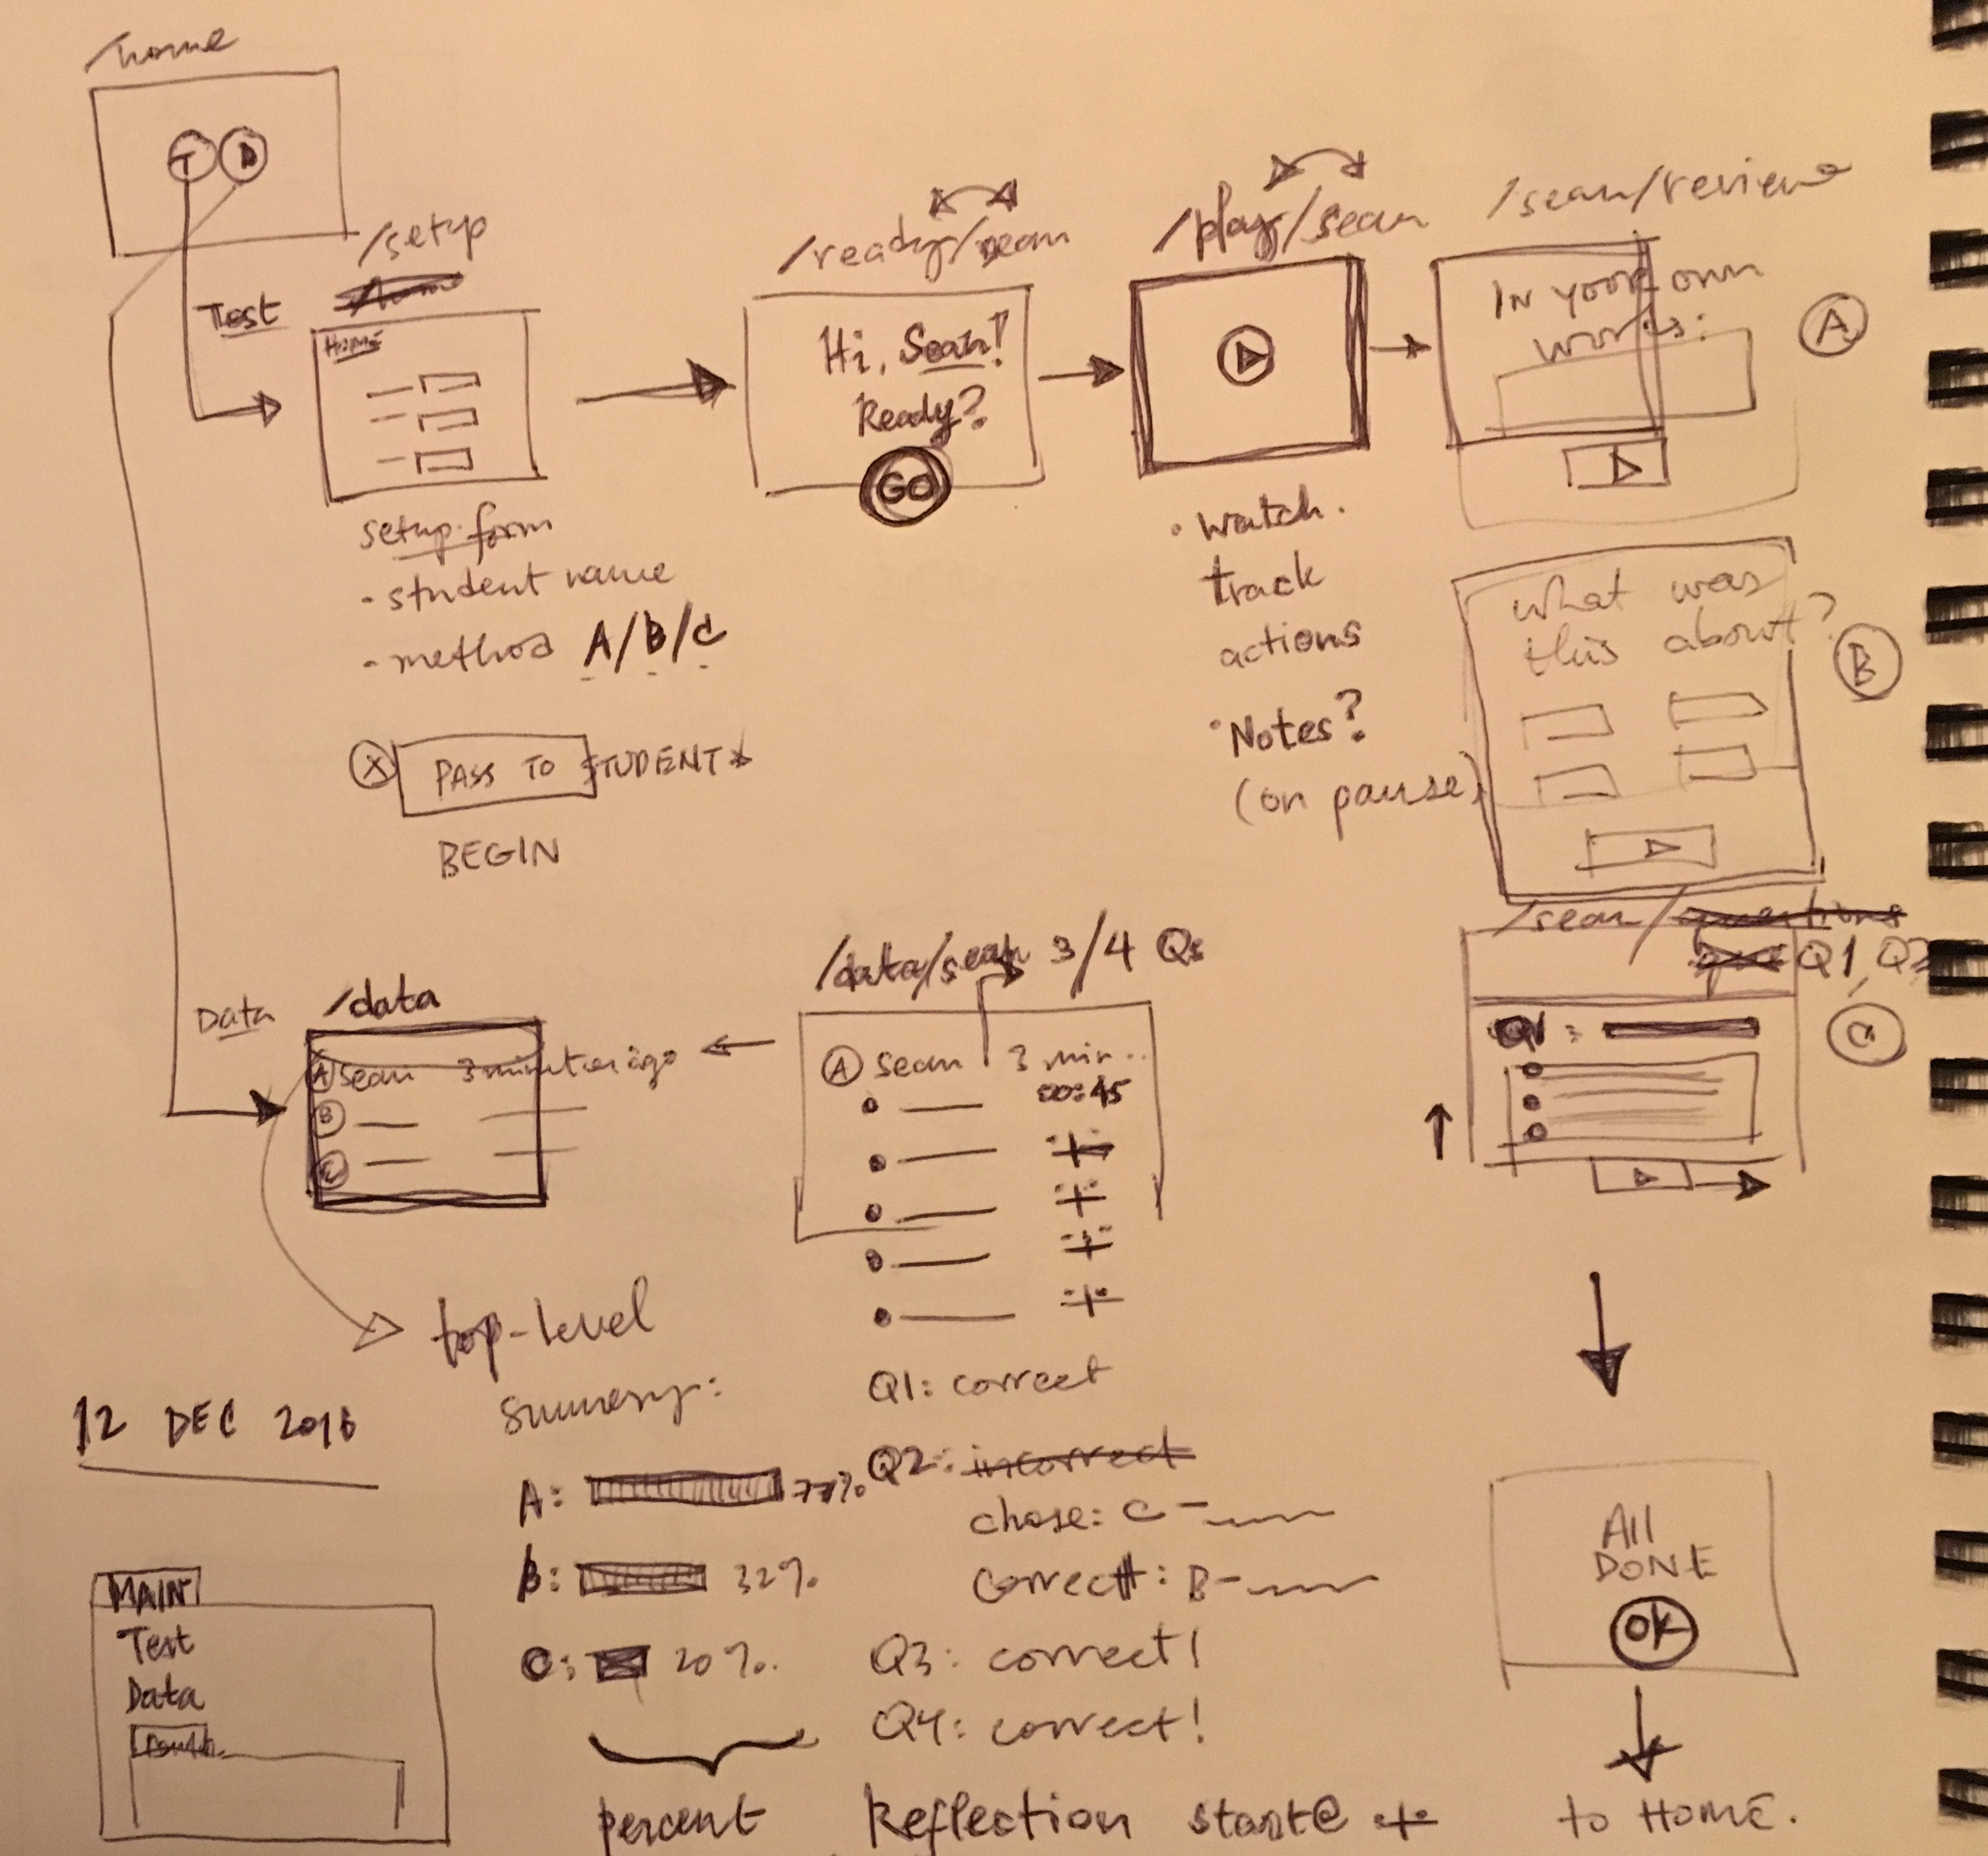 /home
T D
/setup
Test
Home
setup form
- student name
- method A/B/C
X PASS TO STUDENT
BEGIN
/ready/sean
Hi, Sean!
Ready?
GO
/play/sean
• watch.
track
actions
• Notes?
(on pause)
/sean/review
In your own
words:
A
what was
this about?
B
/sean/questions
Q1, Q2
Q1:
C
All
DONE
OK
to HOME.
Data
/data
A Sean 3 minutes ago
B
C
top-level
summary:
A: 77%
B: 32%
C: 20%
percent
/data/sean 3/4 Qs
A Sean 3 min..
00:45
Q1: correct
Q2: incorrect
chose: C -
correct: B -
Q3: correct!
Q4: correct!
Reflection start@
12 DEC 2016
MAIN
Test
Data